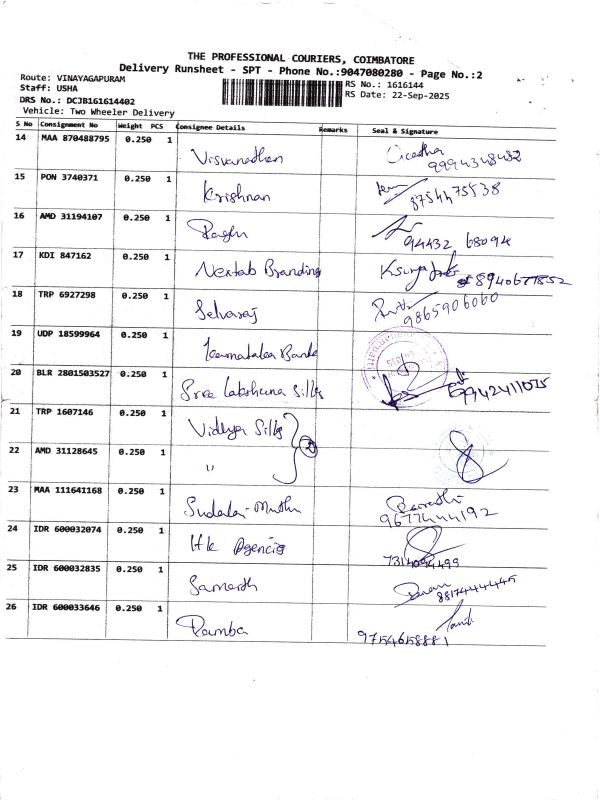 THE PROFESSIONAL COURIERS, COIMBATORE
Delivery Runsheet - SPT - Phone No.:9047080280 - Page No.:2
Route: VINAYAGAPURAM
RS No.: 1616144
Staff: USHA
RS Date: 22-Sep-2025
DRS No.: DCJB161614402
Vehicle: Two Wheeler Delivery
S No Consignment No Weight PCS Consignee Details Remarks Seal & Signature
14 MAA 870488795 0.250 1 Visvanathan
9994348482
15 PON 3740371 0.250 1 Krishnan
8754475538
16 AMD 31194107 0.250 1 Raghu
94432 68094
17 KDI 847162 0.250 1 Nextab Branding
18 TRP 6927298 0.250 1 Selvaraj
9865906060
19 UDP 18599964 0.250 1 Karnataka Bank
20 BLR 2801503527 0.250 1 Sree Lakshana Silks
21 TRP 1607146 0.250 1 Vidhya Silks
22 AMD 31128645 0.250 1 "
23 MAA 111641168 0.250 1 Sudalai Muthu
9677444192
24 IDR 600032074 0.250 1 Agencis
25 IDR 600032835 0.250 1 Samarth
26 IDR 600033646 0.250 1 Ramba
9754658881